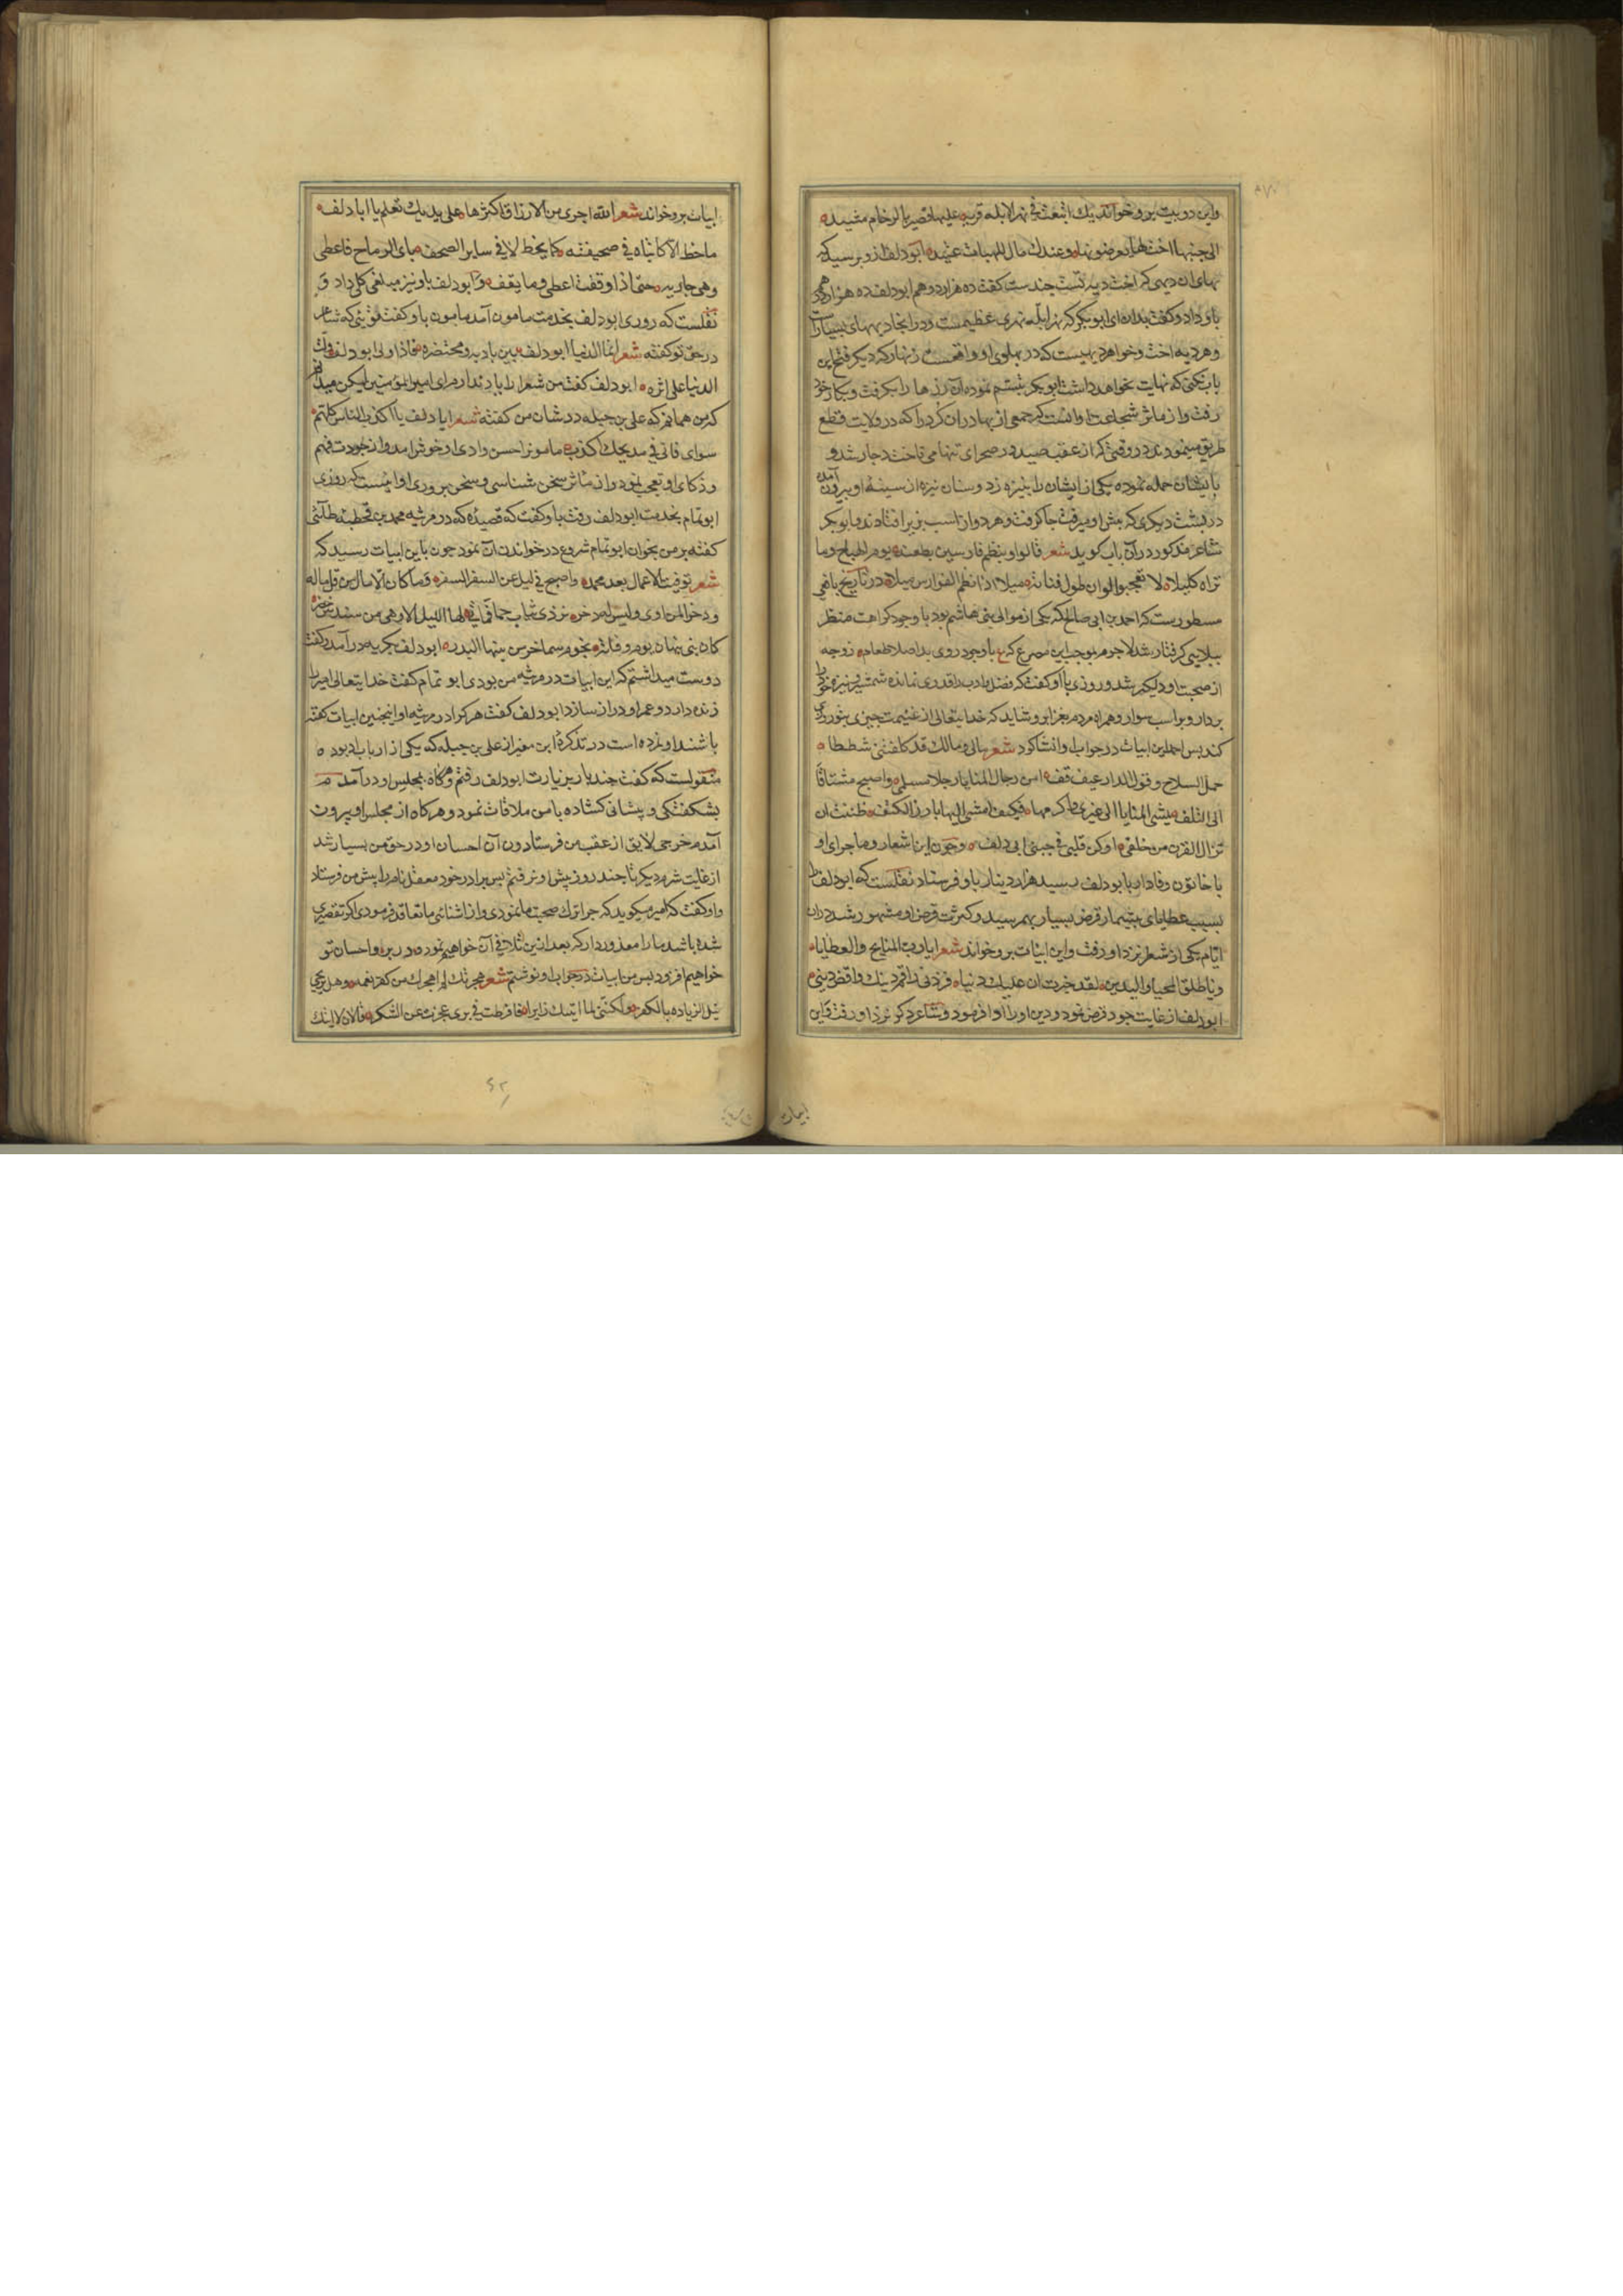 واین دو بیت برو خواند بك ابتعت فی نهر الابله قریه علیها قصیر بالرخام مشیده
الی جنبها اخت لها یعرضونها وعندك مال للهبات عتیده ابودلف ازو پرسید که
بهای ان دیهی که اخت دیه تست چندست کفت ده هزار درهم ابودلف ده هزار درهم
باو داد وکفت بدان ای ابوبکر که نهر ابله نهری عظیمست ودر انجا دیههای بسیارست
وهر دیه اخت وخواهر دیهیست که در پهلوی او واقعست زنهار که دیکر فتح این
باب نکنی که نهایت نخواهد داشت ابوبکر تبسم نموده آن زرها را بکرفت وبکار خود
رفت واز ماثر شجاعت او انست که جمعی از بهادران کرد را که در ولایت قطع
طریق مینمودند در وقتی که از عقب صید در صحرای تنها می تاخت دچار شد و
بایشان حمله نموده یکی از ایشان را بنیزه زد وسنان نیزه از سینهٔ او بیرون آمده
در پشت دیکری که پیش او میرفت جا کرفت وهر دو از اسب بزیر افتادند وابوبکر
شاعر مذکور در آن باب کوید شعر قالوا وینظم فارسین بطعنه یوم الهیاج وما
تراه کلیلا لا تعجبوا لو ان طول قناته میلا اذا نظم الفوارس میلا در تاریخ یافعی
مسطورست که احمد بن ابی صالح که یکی از موالی بنی هاشم بود با وجود کراهت منظر
ببلای کرفتار شد لاجرم بموجب این مصرع که ع با وجود روی بد اصلا طعام زوجه
از صحبت او دلکیر شد وروزی با او کفت که فضل وادب را قدری نمانده شمشیر ونیزه خود را
بردار وبر اسب سوار وهمراه مردم بغزا برو شاید که خدایتعالی از غنیمت چیزی بتو روزی
کند پس احمد این ابیات در جواب او انشا کرد شعر مالی ومالك قد کلفتنی شططا
حمل السلاح وقول الدارعین قف امن رجال المنایا رجلا مسلی واصبح مشتاقا
الی التلف یمشی المنایا الی غیری فاکرهها فکیف امشی الیها بارز الکتف ظننت ان
نزال القرن من خلقی او کن قلبی فی جنبی ابی دلف وچون این اشعار وماجرای او
با خاتون وفادار بابودلف رسید هزار دینار باو فرستاد نقلست که ابودلف را
بسبب عطایای بیشمار قرض بسیار بهم رسید وکثرت قرض او مشهور شد در ان
ایام یکی از شعرا نزد او رفت واین ابیات برو خواند شعر ایا رب المنایح والعطایا
ویا طلق المحیا والیدین لقد خبرت ان علیك دینا فزد فی رقم دینك واقض دینی
ابودلف از غایت جود قرض نمود ودین او را ادا فرمود وشاعر دکر نزد او رفت واین
ابیات
ابیات برو خواند شعر الله اجری من الارزاق اکثرها علی یدیك تعلم یا ابا دلف
ما خط لا کاتباه فی صحیفته کما یخط لا فی سایر الصحف باری الریاح فاعطی
وهی جاریه حتی اذا وقفت اعطی وما یقف وابودلف باو نیز مبلغی کلی داد و
نقلست که روزی ابودلف بخدمت مامون آمد مامون باو کفت توئی که شاعر
در حق تو کفته شعر انما الدنیا ابودلف بین بادیه ومحتضره فاذا ولی ابودلف ولت
الدنیا علی اثره ابودلف کفت من شعرا را یاد ندارم ای امیرالمؤمنین لیکن میدانم
که من همانم که علی بن جبله در شان من کفته شعر ابا دلف یا اکذب الناس کلهم
سوای فانی فی مدیحك اکذب مامون را حسن وادی او خوش امد واز جودت فهم
وذکای او تعجب نمود واز ماثر سخن شناسی وسخن پروری او اینست که روزی
ابوتمام بخدمت ابودلف رفت باو کفت که قصیدهٔ که در مرثیه محمد بن قحطبه طائی
کفتهٔ بر من بخوان ابوتمام شروع در خواندن آن نمود چون باین ابیات رسید که
شعر توفیت الاعمال بعد محمد واصبح فی لیل عن السفر السفر وما کان الا مال من قل ماله
وذخرا لمن اوی ولیس له ذخر تردی ثیاب حمر فما اتی لها اللیل الا وهی من سندس خضر
کان بنی نبهان یوم وفاته نجوم سما خر من بینها البدر ابودلف بکریه در آمد وکفت
دوست میداشتم که این ابیات در مرثیه من بودی ابوتمام کفت خدایتعالی امیر را
زنده دارد وعمر او دراز سازد ابودلف کفت هر کرا در مرثیه او اینچنین ابیات کفته
باشند او نمرده است در تذکرهٔ ابن معتز از علی بن جبله که یکی از ارباب ادب بوده
منقولست که کفت چند بار بزیارت ابودلف رفتم وهرکاه بمجلس او در آمدم
بشکفتکی وپیشانی کشاده با من ملاقات نمود وهرکاه از مجلس او بیرون
آمدم خرجی لایق از عقب من فرستاد چون آن احسان او در حق من بسیار شد
از غایت شرم دیکر تا چند روز پیش او نرفتم پس برادر خود معقل نام را پیش من فرستاد
واو کفت که امیر میکوید که چرا ترك صحبت ما نمودی واز اشنائی ما تقاعد فرمودی اکر تقصیری
شده باشد ما را معذور دار که بعد ازین تلافی آن خواهیم نمود ودر بر واحسان تو
خواهیم افزود پس من ابیات در جواب او نوشتم شعر هجرتك لم اهجرك من کفر نعمه وهل یرتجی
نیل الزیاده بالکفر ولکننی لما اتیتك زایرا فافرطت فی بری عجزت عن الشکر فالان لا اتیك